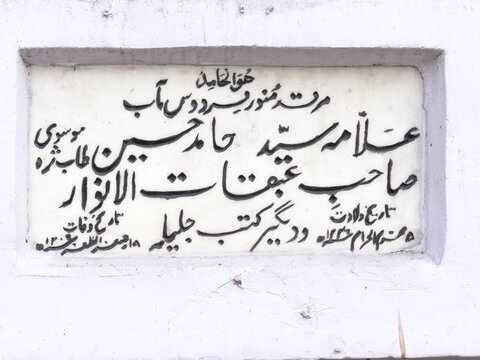 هو الحامد
مرقد منور فردوس مآب
علامہ سید حامد حسین موسوی طاب ثرہ
صاحب عبقات الانوار
و دیگر کتب جلیلہ
تاریخ ولادت
۵ محرم الحرام ۱۲۴۶ھ
تاریخ وفات
۱۸ صفر المظفر ۱۳۰۶ھ